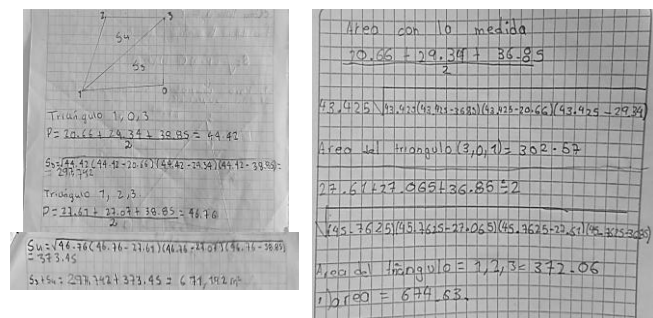 2
3
S4
S3
1
0
Triángulo 1,0,3
P= 20.66 + 29.34 + 38.85 = 44.42
2
S3=√44.42 (44.42-20.66) (44.42-29.34) (44.42-38.85)=
= 297,742
Triángulo 1, 2, 3.
P= 27.61 + 27.07 + 38.85 = 46.76
2
S4= √46.76 (46.76-27.61) (46.76-27.07) (46.76-38.85)
= 373.45
S3+S4= 297,742 + 373.45 = 671,192 m²
Area con lo medida
20.66 + 29.34 + 36.85
2
43.425 √43.425(43.425-36.85)(43.425-20.66)(43.425-29.34)
Area del triangulo (3,0,1) = 302.57
27.61+27.065+36.85÷2
√(45.7625)(45.7625-27.065)(45.7625-27.61)(45.7625-36.85)
Area del triangulo = 1,2,3= 372.06
area = 674.63.